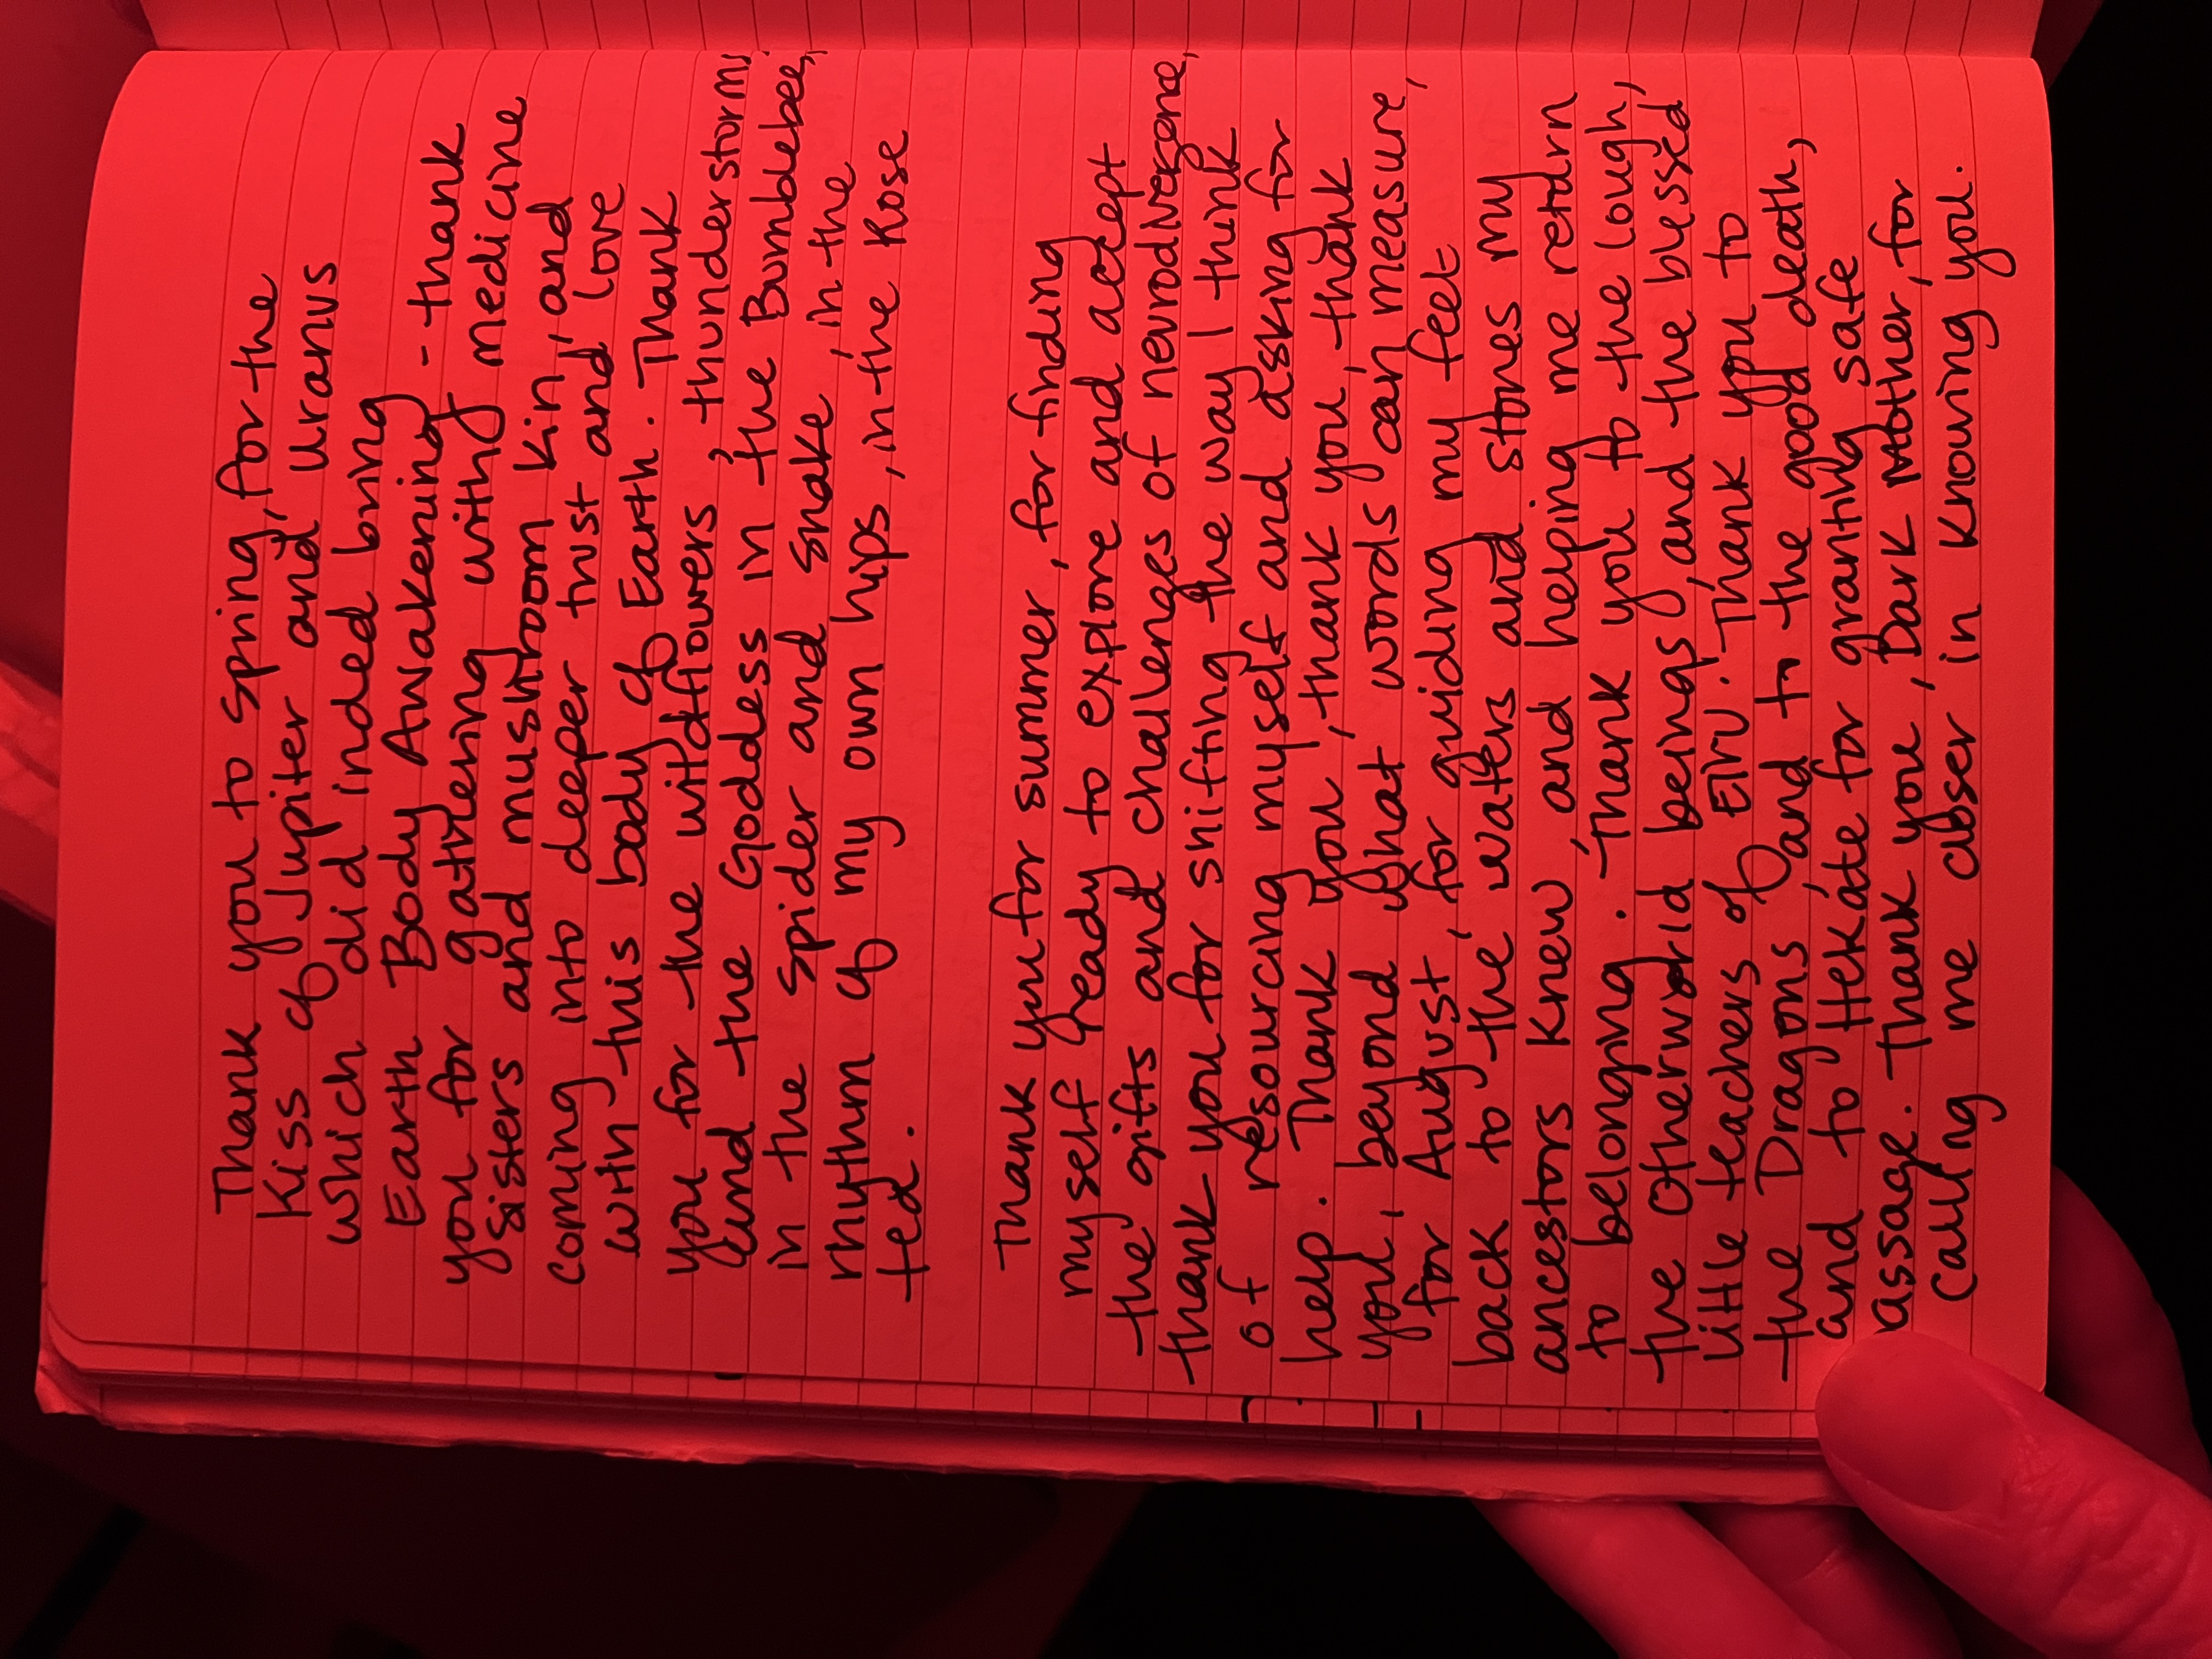 Thank you to Spring, for the
Kiss of Jupiter and Uranus
which did indeed bring
Earth Body Awakening - thank
you for gathering with medicine
sisters and mushroom kin, and
coming into deeper trust and love
with this body of Earth. Thank
you for the wildflowers, thunderstorms,
and the Goddess in the Bumblebee,
in the Spider and Snake, in the
rhythm of my own hips, in the Rose
tea.
Thank you for summer, for finding
myself ready to explore and accept
the gifts and challenges of neurodivergence,
thank you for shifting the way I think
of resourcing myself and asking for
help. Thank you, thank you, thank
you, beyond what words can measure,
for August, for guiding my feet
back to the waters and stones my
ancestors knew, and helping me return
to belonging. Thank you to the lough,
the Otherworld beings, and the blessed
little teachers of Eiru. Thank you to
the Dragons, and to the good death,
and to Hekate for granting safe
passage. Thank you, Dark Mother, for
calling me closer in knowing you.